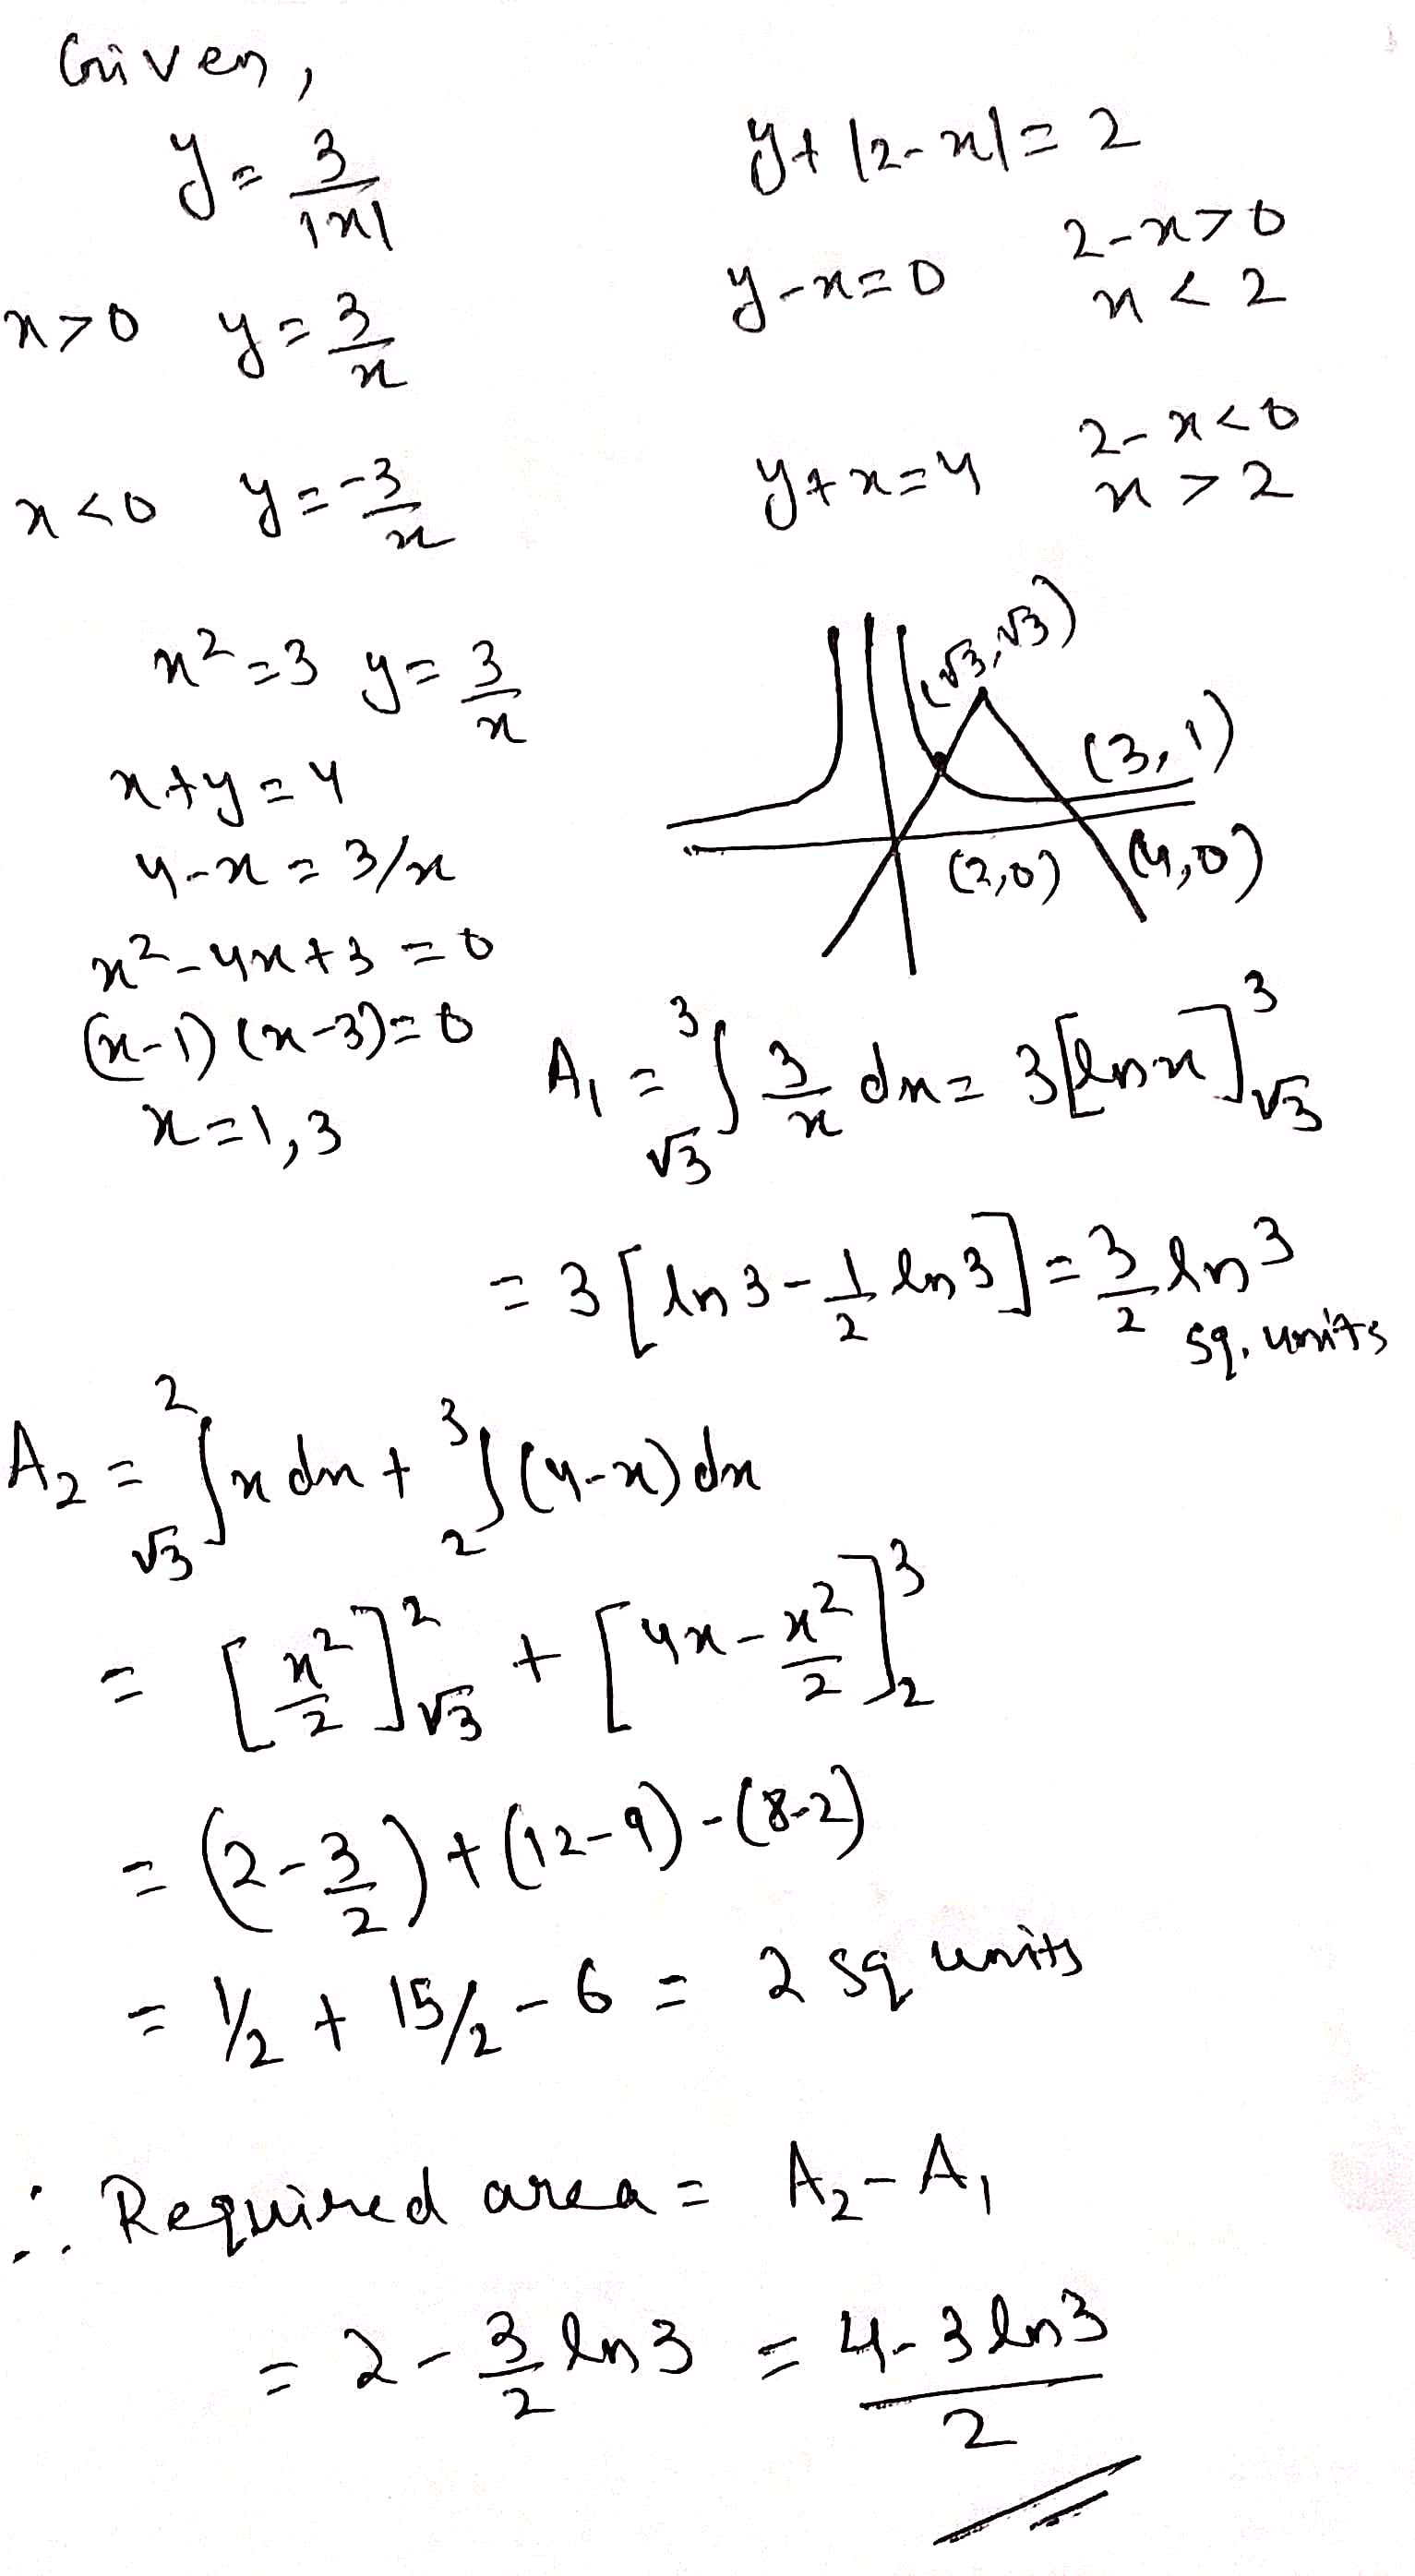 Given,
y = 3/|x|
y + |2-x| = 2
x>0 y = 3/x
y-x=0 2-x>0
x < 2
x<0 y = -3/x
y+x=4 2-x<0
x > 2
x² = 3 y = 3/x
x+y=4
4-x = 3/x
x²-4x+3 = 0
(x-1)(x-3)=0
x=1,3
(√3,√3)
(3,1)
(2,0) (4,0)
A₁ = ∫_{√3}^{3} 3/x dx = 3[ln x]_{√3}^{3}
= 3[ln 3 - 1/2 ln 3] = 3/2 ln 3
sq. units
A₂ = ∫_{√3}^{2} x dx + ∫_{2}^{3} (4-x) dx
= [x²/2]_{√3}^{2} + [4x - x²/2]_{2}^{3}
= (2 - 3/2) + (12-9) - (8-2)
= 1/2 + 15/2 - 6 = 2 sq units
∴ Required area = A₂ - A₁
= 2 - 3/2 ln 3 = (4-3 ln 3)/2